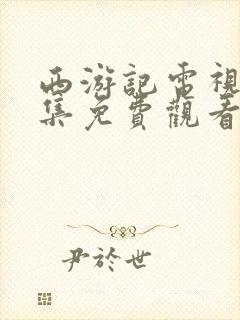 西游記電視
集免費觀看
尹於世